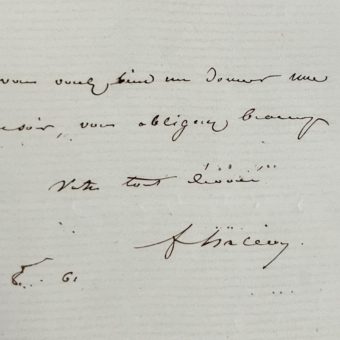 vous voulez bien me donner une
soir, vous obligerez beaucoup
Votre tout dévoué